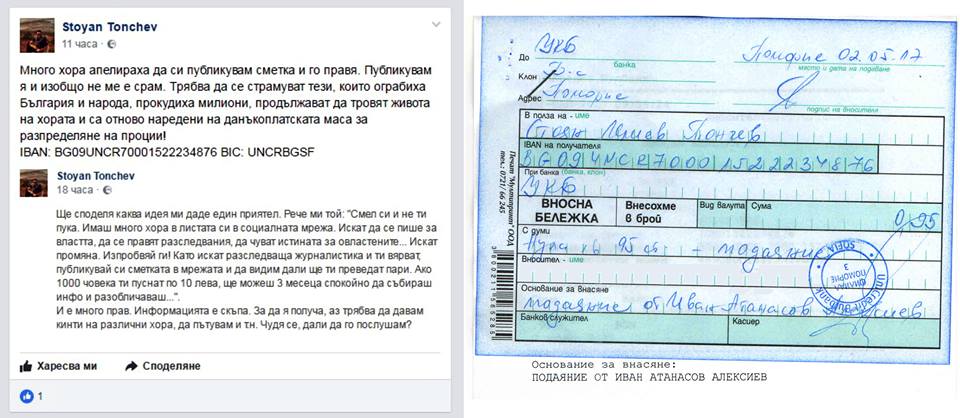 Stoyan Tonchev
11 часа ·
Много хора апелираха да си публикувам сметка и го правя. Публикувам
я и изобщо не ме е срам. Трябва да се страмуват тези, които ограбиха
България и народа, прокудиха милиони, продължават да тровят живота
на хората и са отново наредени на данъкоплатската маса за
разпределяне на проции!
IBAN: BG09UNCR70001522234876 BIC: UNCRBGSF
Stoyan Tonchev
18 часа ·
Ще споделя каква идея ми даде един приятел. Рече ми той: "Смел си и не ти
пука. Имаш много хора в листата си в социалната мрежа. Искат да се пише за
властта, да се правят разследвания, да чуват истината за овластените... Искат
промяна. Изпробвяй ги! Като искат разследваща журналистика и ти вярват,
публикувай си сметката в мрежата и да видим дали ще ти преведат пари. Ако
1000 човека ти пуснат по 10 лева, ще можеш 3 месеца спокойно да събираш
инфо и разобличаваш...".
И е много прав. Информацията е скъпа. За да я получа, аз трябва да давам
кинти на различни хора, да пътувам и тн. Чудя се, дали да го послушам?
Харесва ми Споделяне
1
До УКБ
банка
Поморие 02.05.17
място и дата на подаване
Клон
Адрес Поморие
подпис на вносителя
В полза на - име
Стоян Тончев
IBAN на получателя
BG09UNCR70001522234876
При банка (банка, клон)
УКБ
ВНОСНА БЕЛЕЖКА
Внесохме в брой
Вид валута
Сума
0,95
С думи
95 ст - подаяние
Вносител - име
Основание за внасяне
подаяние от Иван Атанасов
Банков служител
Касиер
Печат "Мултипринт" ООД
UniCredit Bulbank
SOFIA
ФИЛИАЛ
ПОМОРИЕ
3
Основание за внасяне:
ПОДАЯНИЕ ОТ ИВАН АТАНАСОВ АЛЕКСИЕВ